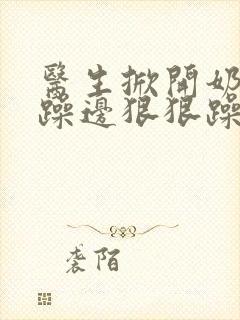 醫生掀開奶
躁邊狠狠躁
袭陌